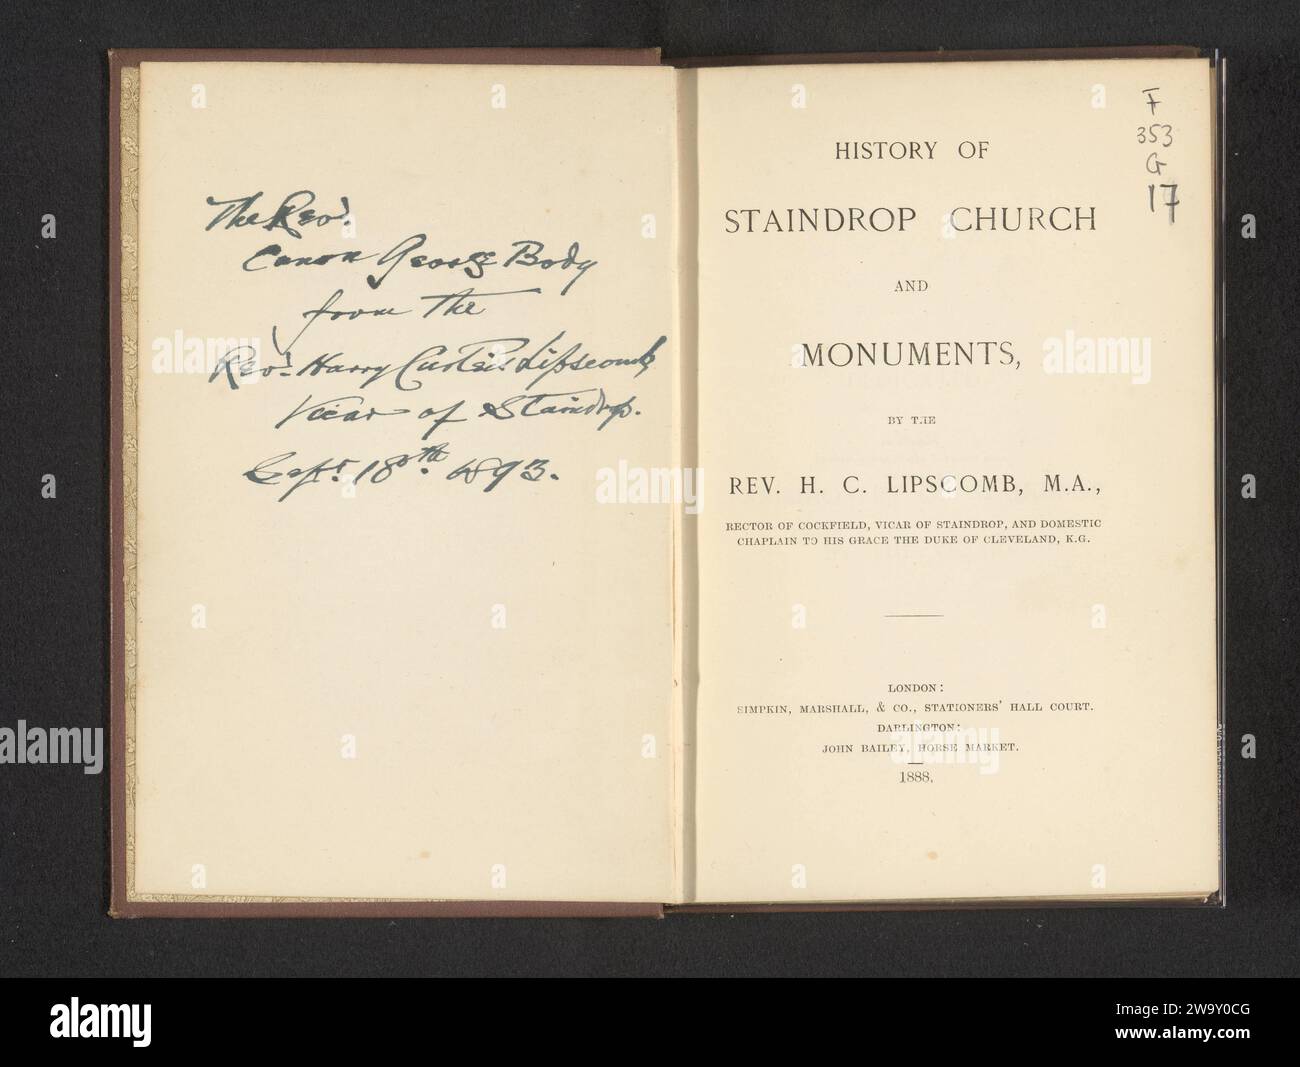 The Revd.
Canon George Body
from the
Revd. Harry Curteis Lipscomb
Vicar of Staindrop.
Sept. 18th. 1893.
F
353
G
17
HISTORY OF
STAINDROP CHURCH
AND
MONUMENTS,
BY THE
REV. H. C. LIPSCOMB, M.A.,
RECTOR OF COCKFIELD, VICAR OF STAINDROP, AND DOMESTIC
CHAPLAIN TO HIS GRACE THE DUKE OF CLEVELAND, K.G.
LONDON:
SIMPKIN, MARSHALL, & CO., STATIONERS' HALL COURT.
DARLINGTON:
JOHN BAILEY, HORSE MARKET.
1888.
alamy
Image ID: 2W9Y0CG
www.alamy.com